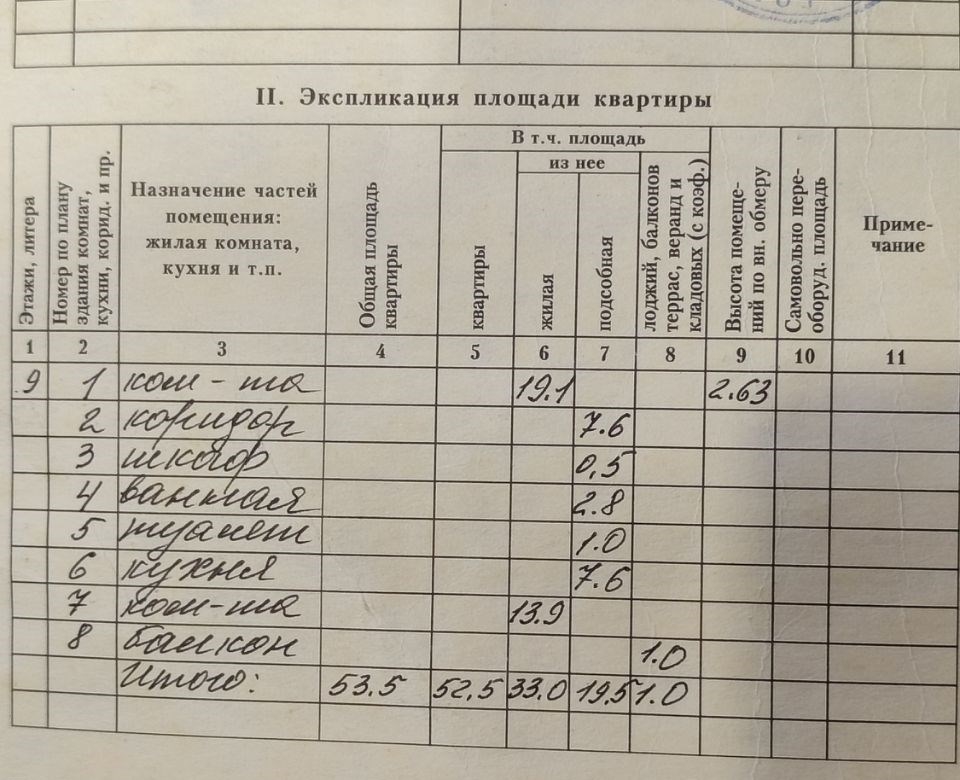 II. Экспликация площади квартиры
Этажи, литера
Номер по плану
здания комнат,
кухни, корид. и пр.
Назначение частей
помещения:
жилая комната,
кухня и т.п.
Общая площадь
квартиры
В т.ч. площадь
квартиры
из нее
жилая
подсобная
лоджий, балконов
террас, веранд и
кладовых (с коэф.)
Высота помеще-
ний по вн. обмеру
Самовольно пере-
оборуд. площадь
Приме-
чание
1 2 3 4 5 6 7 8 9 10 11
9 1 ком-та 19.1 2.63
2 коридор 7.6
3 шкаф 0,5
4 ванная 2.8
5 туалет 1.0
6 кухня 7.6
7 ком-та 13.9
8 балкон 1.0
Итого: 53.5 52.5 33.0 19.5 1.0